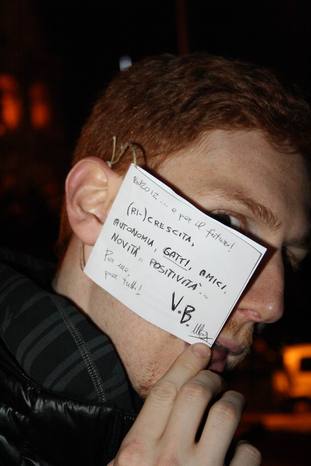 ... e per il futuro!
(RI-)CRESCITA,
AUTONOMIA, GATTI, AMICI,
NOVITÀ... POSITIVITÀ...
Per me,
per tutti!
V.B.